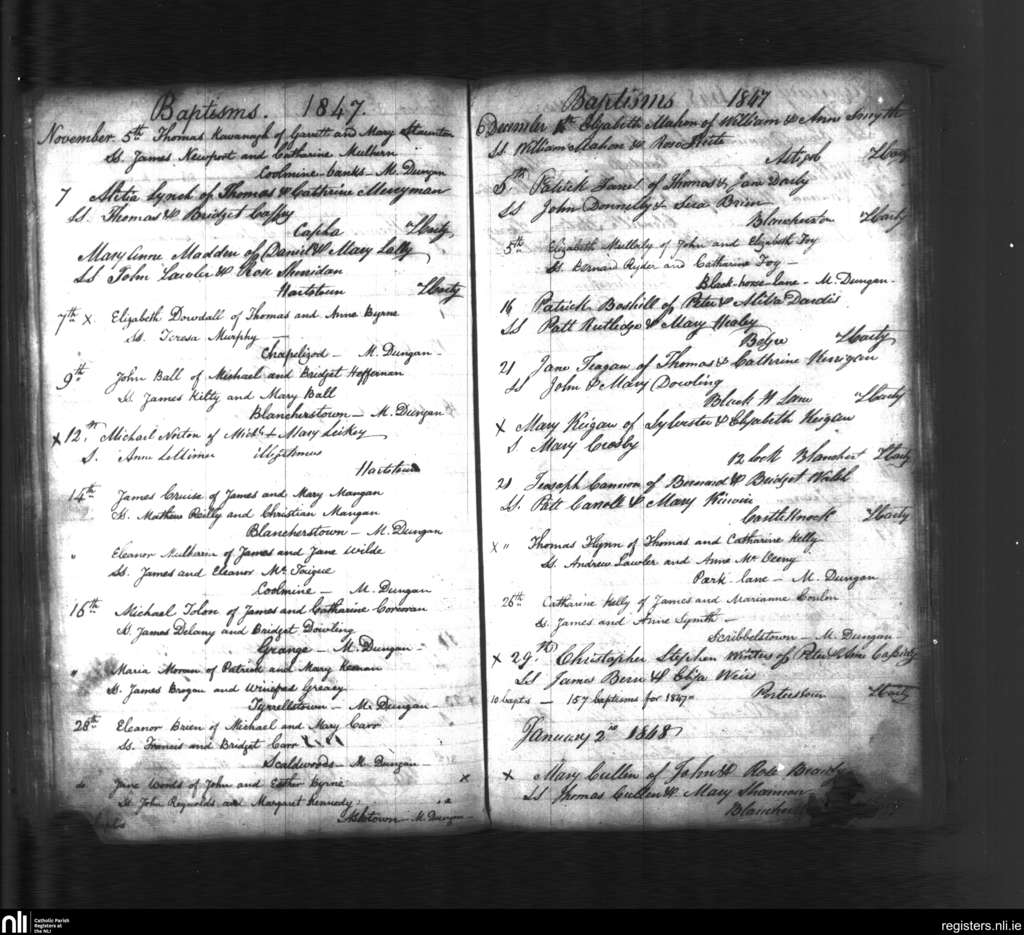 Baptisms. 1847.
November. 5th Thomas Kavanagh of Garett and Mary Staunton
Ss. James Newport and Catharine Mulhern
Coolmine banks - M. Dungan
7 Lynch of Thomas & Cathrine Merryman
SS. Thomas & Bridget Caffey
Harty
Mary Anne Madden of Daniel & Mary Lally
SS John Lawler & Rose Sheridan
Hartstown Harty
7th x. Elizabeth Dowdall of Thomas and Anne Byrne
Ss. Teresa Murphy —
Chapelizod - M. Dungan -
9th John Ball of Michael and Bridget Heffernan
Ss. James Kitty and Mary Ball
Blancherstown - M. Dungan
x 12.th Michael Norton of Michl & Mary Leikey
S. Anne Lettimer
Hartstown
14th James Cruise of James and Mary Mangan
Ss. Mathew Reilly and Christian Mangan
Blancherstown - M. Dungan
" Eleanor Mulharin of James and Jane Wilde
Ss. James and Eleanor Mc
Coolmine - M. Dungan
16th Michael Tolon of James and Catharine Corcoran
Ss. James Delany and Bridget Dowling
Grange - M. Dungan -
" Maria Moran of Patrick and Mary Keenan
Ss. James Brogan and Winefred Greavy
Tyrrellstown - M. Dungan -
28th Eleanor Brien of Michael and Mary Carr
Ss. Francis and Bridget Carr
Scaldwoods - M. Dungan -
Jane Woods of John and Esther Byrne x
Ss. John Reynolds and Margaret Kennedy
Ashtown - M. Dungan -
Baptisms 1847
December Elizabeth Mahon of William & Anne Smyth
SS William Mahon & Rose
Harty
5th Patrick of Thomas & Jane Darly
SS John Donnelly & Brien
Harty
5th Elizabeth Mullaly of John and Elizabeth Foy
Ss. Bernard Ryder and Catharine Foy -
Black-horse-lane - M. Dungan -
16 Patrick Boshill of Peter & Dardis
SS Patt Rutledge & Mary Healey
Harty
21 Jane Feagan of Thomas & Cathrine Kerrigan
SS John & Mary Dowling
Black H Lane Harty
x Mary Keigan of Sylvester & Elizabeth Keigan
S. Mary Crosby
12 Lock Blanchert Harty
21 Joasaph Cannon of Bernard & Bridget Walsh
SS. Patt Carroll & Mary Kirwin
Castleknock Harty
x " Thomas Flynn of Thomas and Catharine Kelly
Ss. Andrew Lawler and Anne Mc
Park-lane - M. Dungan
26th Catharine Kelly of James and Marianne Conlon
Ss. James and Anne Symth -
Scribbelstown - M. Dungan -
x 29.th Christopher Stephen Winters of Peter & Anne Cassidy
SS James Bern & Eliza Weir
10 bapts - 157 baptisms for 1847 Porterstown Harty
January 2nd 1848
x Mary Cullen of John & Rose
SS Thomas Cullen & Mary Shannon
nli
Catholic Parish
Registers at
the NLI
registers.nli.ie